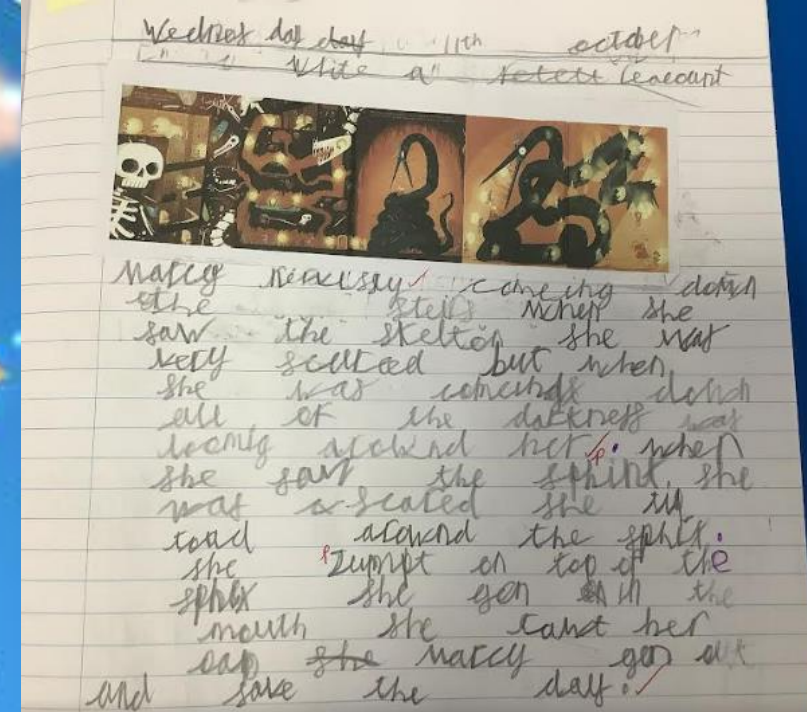 Wednes day day 11th october
Write a recount
Marcy nervussy comeing down
the steirs when she
saw the skelton she was
very scared but when
she was comeing down
all of the darkness was
around her. when
she saw the sphinx she
was scared she
around the sphix.
she Jumpt on top of the
sphix she gon in the
mouth she her
dad she Marcy gon out
and save the day.